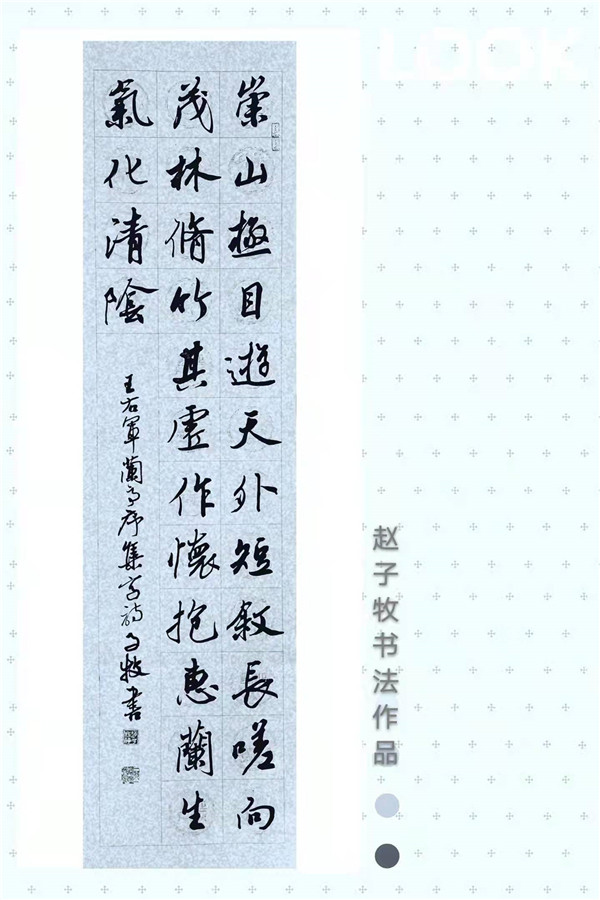 LOOK
崇山極目遊天外短敘長嗟向
茂林脩竹其虛作懷抱惠蘭生
氣化清陰
王右軍蘭亭序集字詩子牧書
赵子牧书法作品